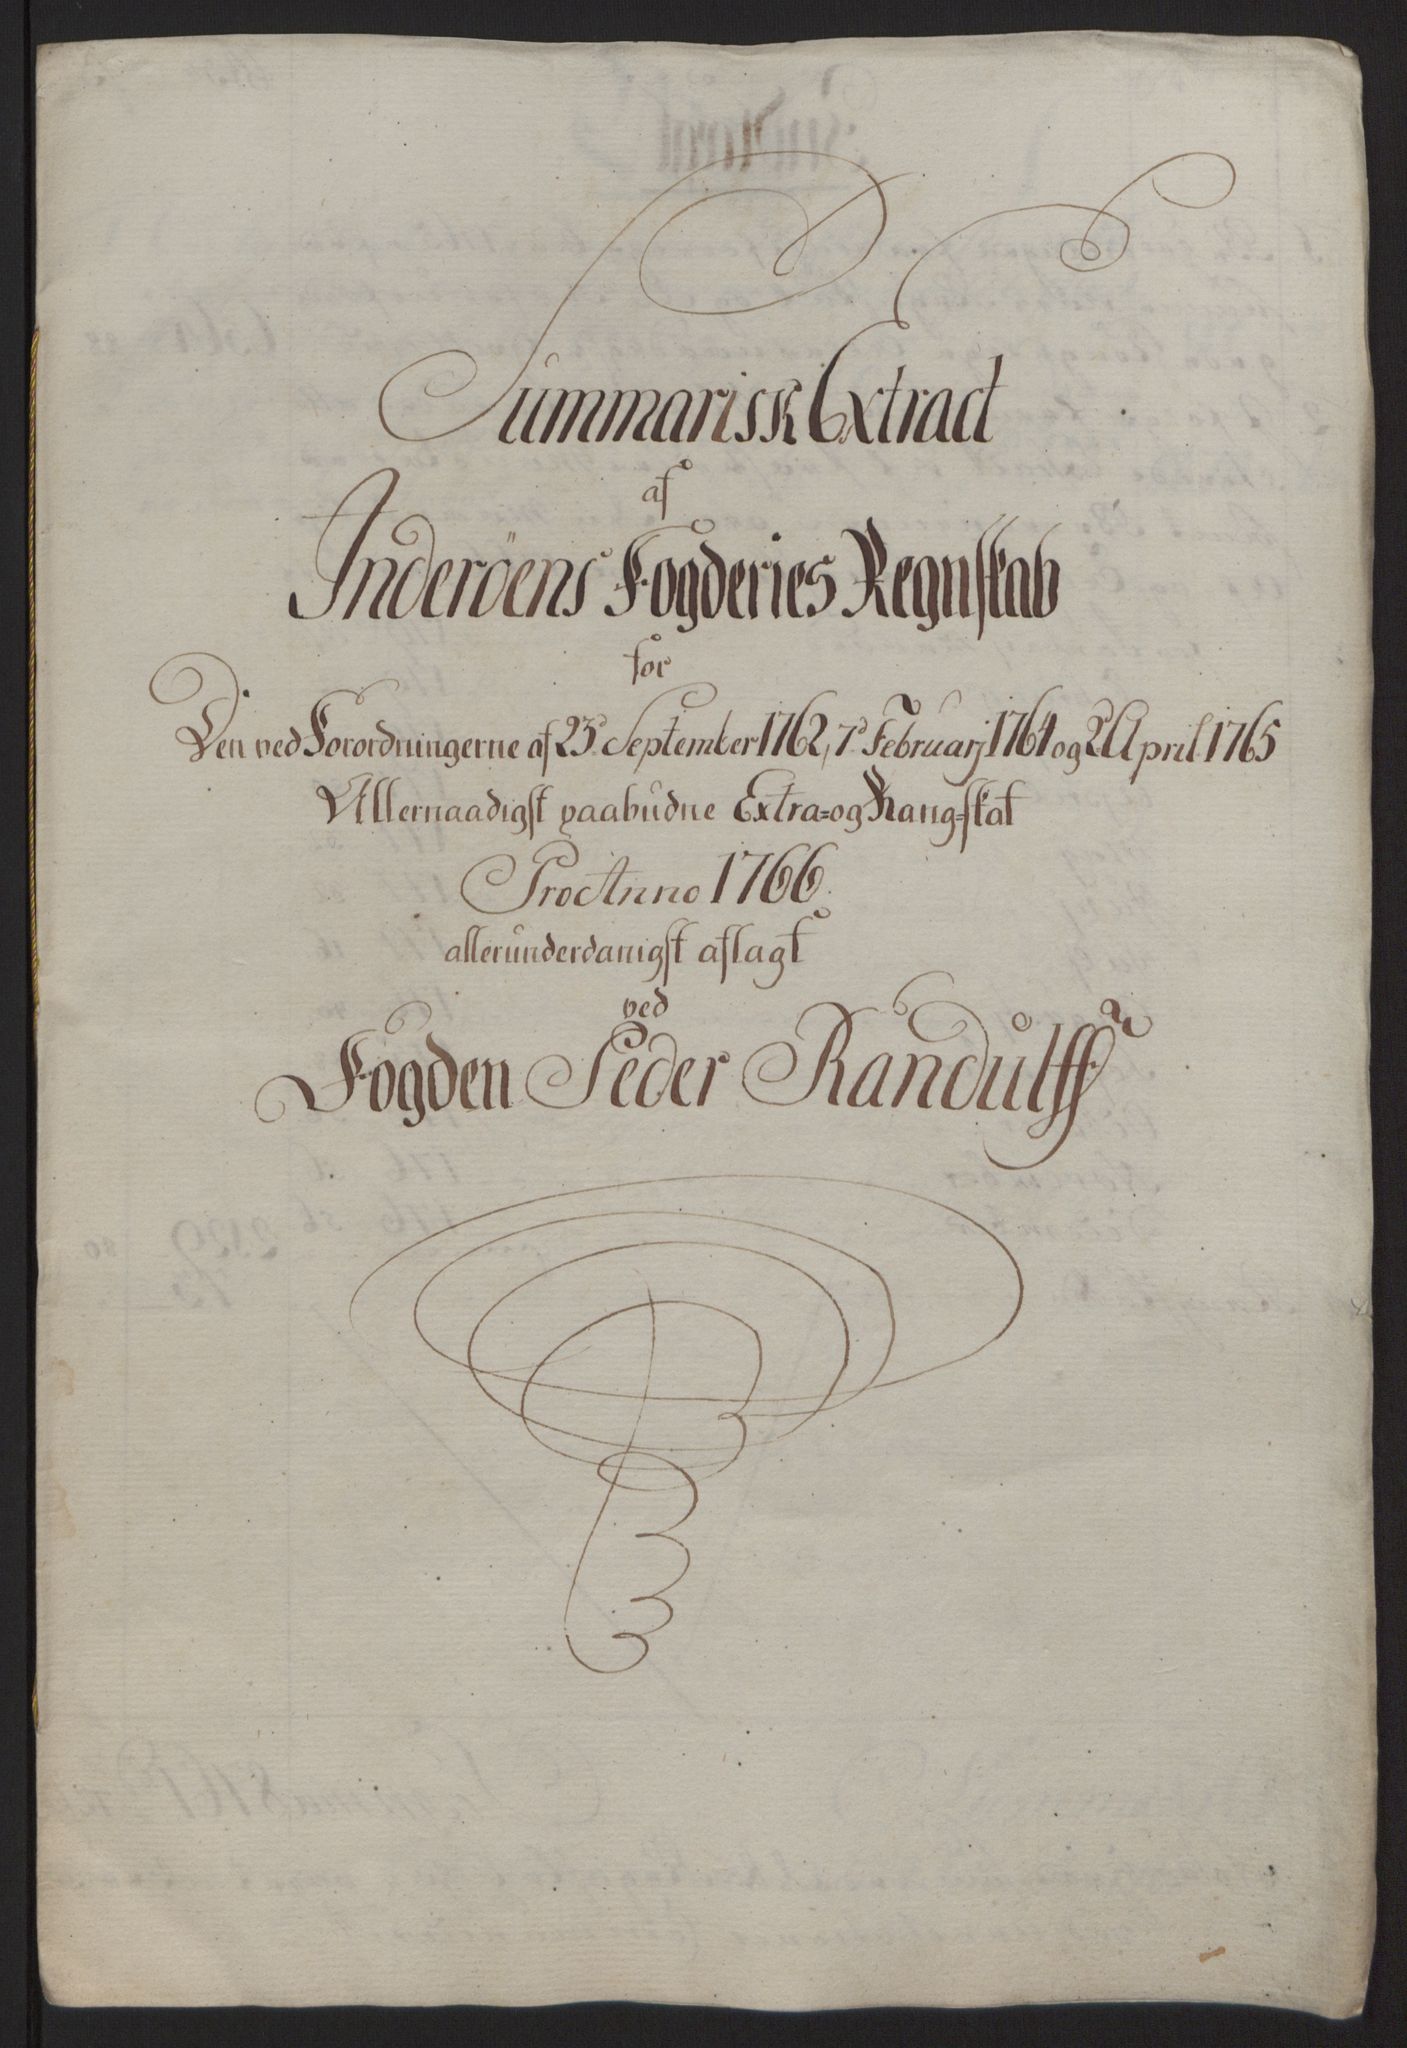 Summarisk Extract
af
Inderöens Fogderies Regnskab
for
Den ved Forordningerne af 23d September 1762, 7d Februarj 1764 og 2d April 1765
Allernaadigst paabudne Extra= og Rang=skat
Pro Anno 1766.
allerunderdanigst aflagt
ved
Fogden Peder Randulff